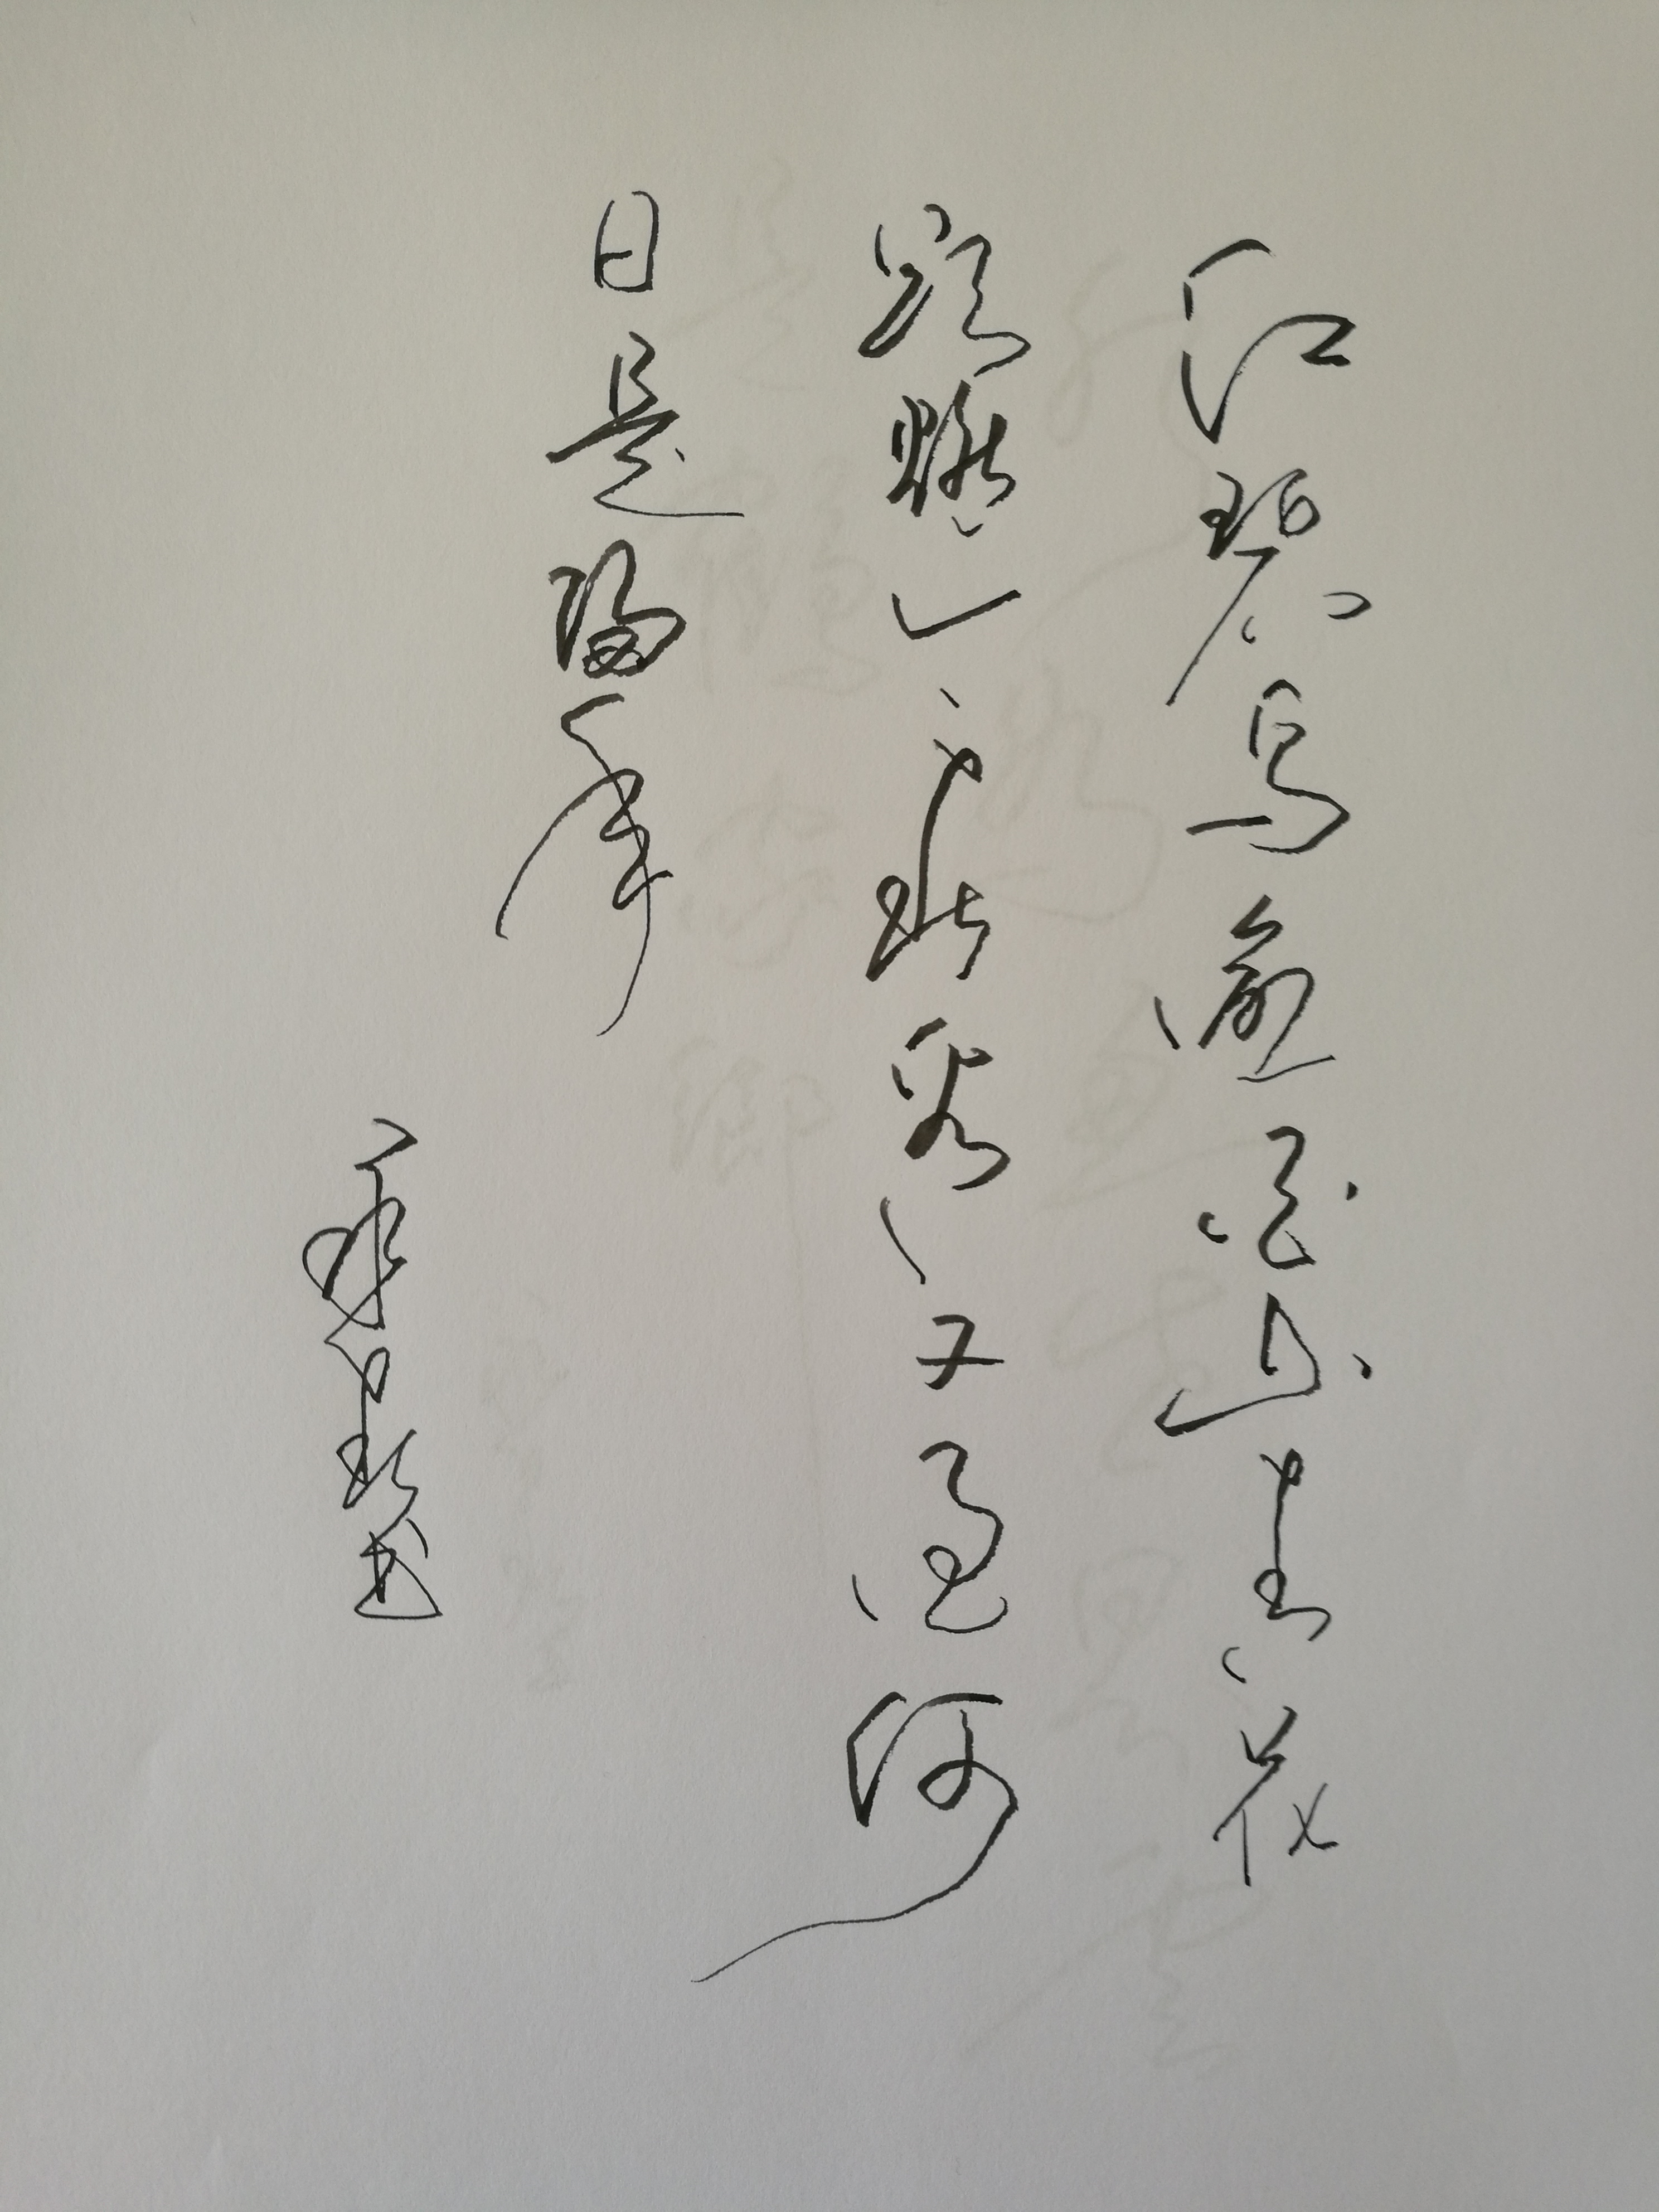 江碧鸟逾白山青花
欲燃今春看又过何
日是归年
书